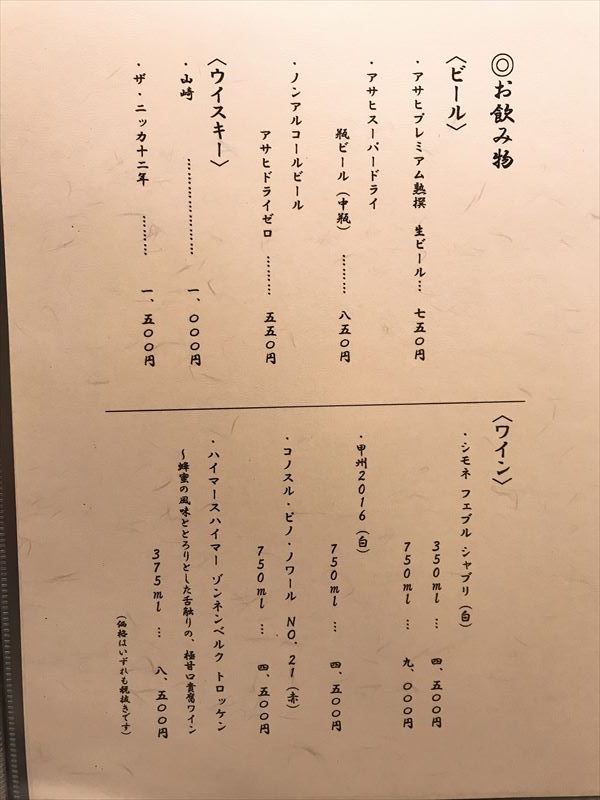 ◎お飲み物
〈ビール〉
・アサヒプレミアム熟撰 生ビール… 七五〇円
・アサヒスーパードライ
瓶ビール(中瓶) ……… 八五〇円
・ノンアルコールビール
アサヒドライゼロ ……… 五五〇円
〈ウイスキー〉
・山崎 ………………… 一、〇〇〇円
・ザ・ニッカ十二年 ……… 一、五〇〇円
〈ワイン〉
・シモネ フェブル シャブリ(白)
350ml … 四、五〇〇円
750ml … 九、〇〇〇円
・甲州2016(白)
750ml … 四、五〇〇円
・コノスル・ピノ・ノワール NO.21(赤)
750ml … 四、五〇〇円
・ハイマースハイマー ゾンネンベルク トロッケン
〜蜂蜜の風味ととろりとした舌触りの、極甘口貴腐ワイン
375ml … 八、五〇〇円
(価格はいずれも税抜きです)